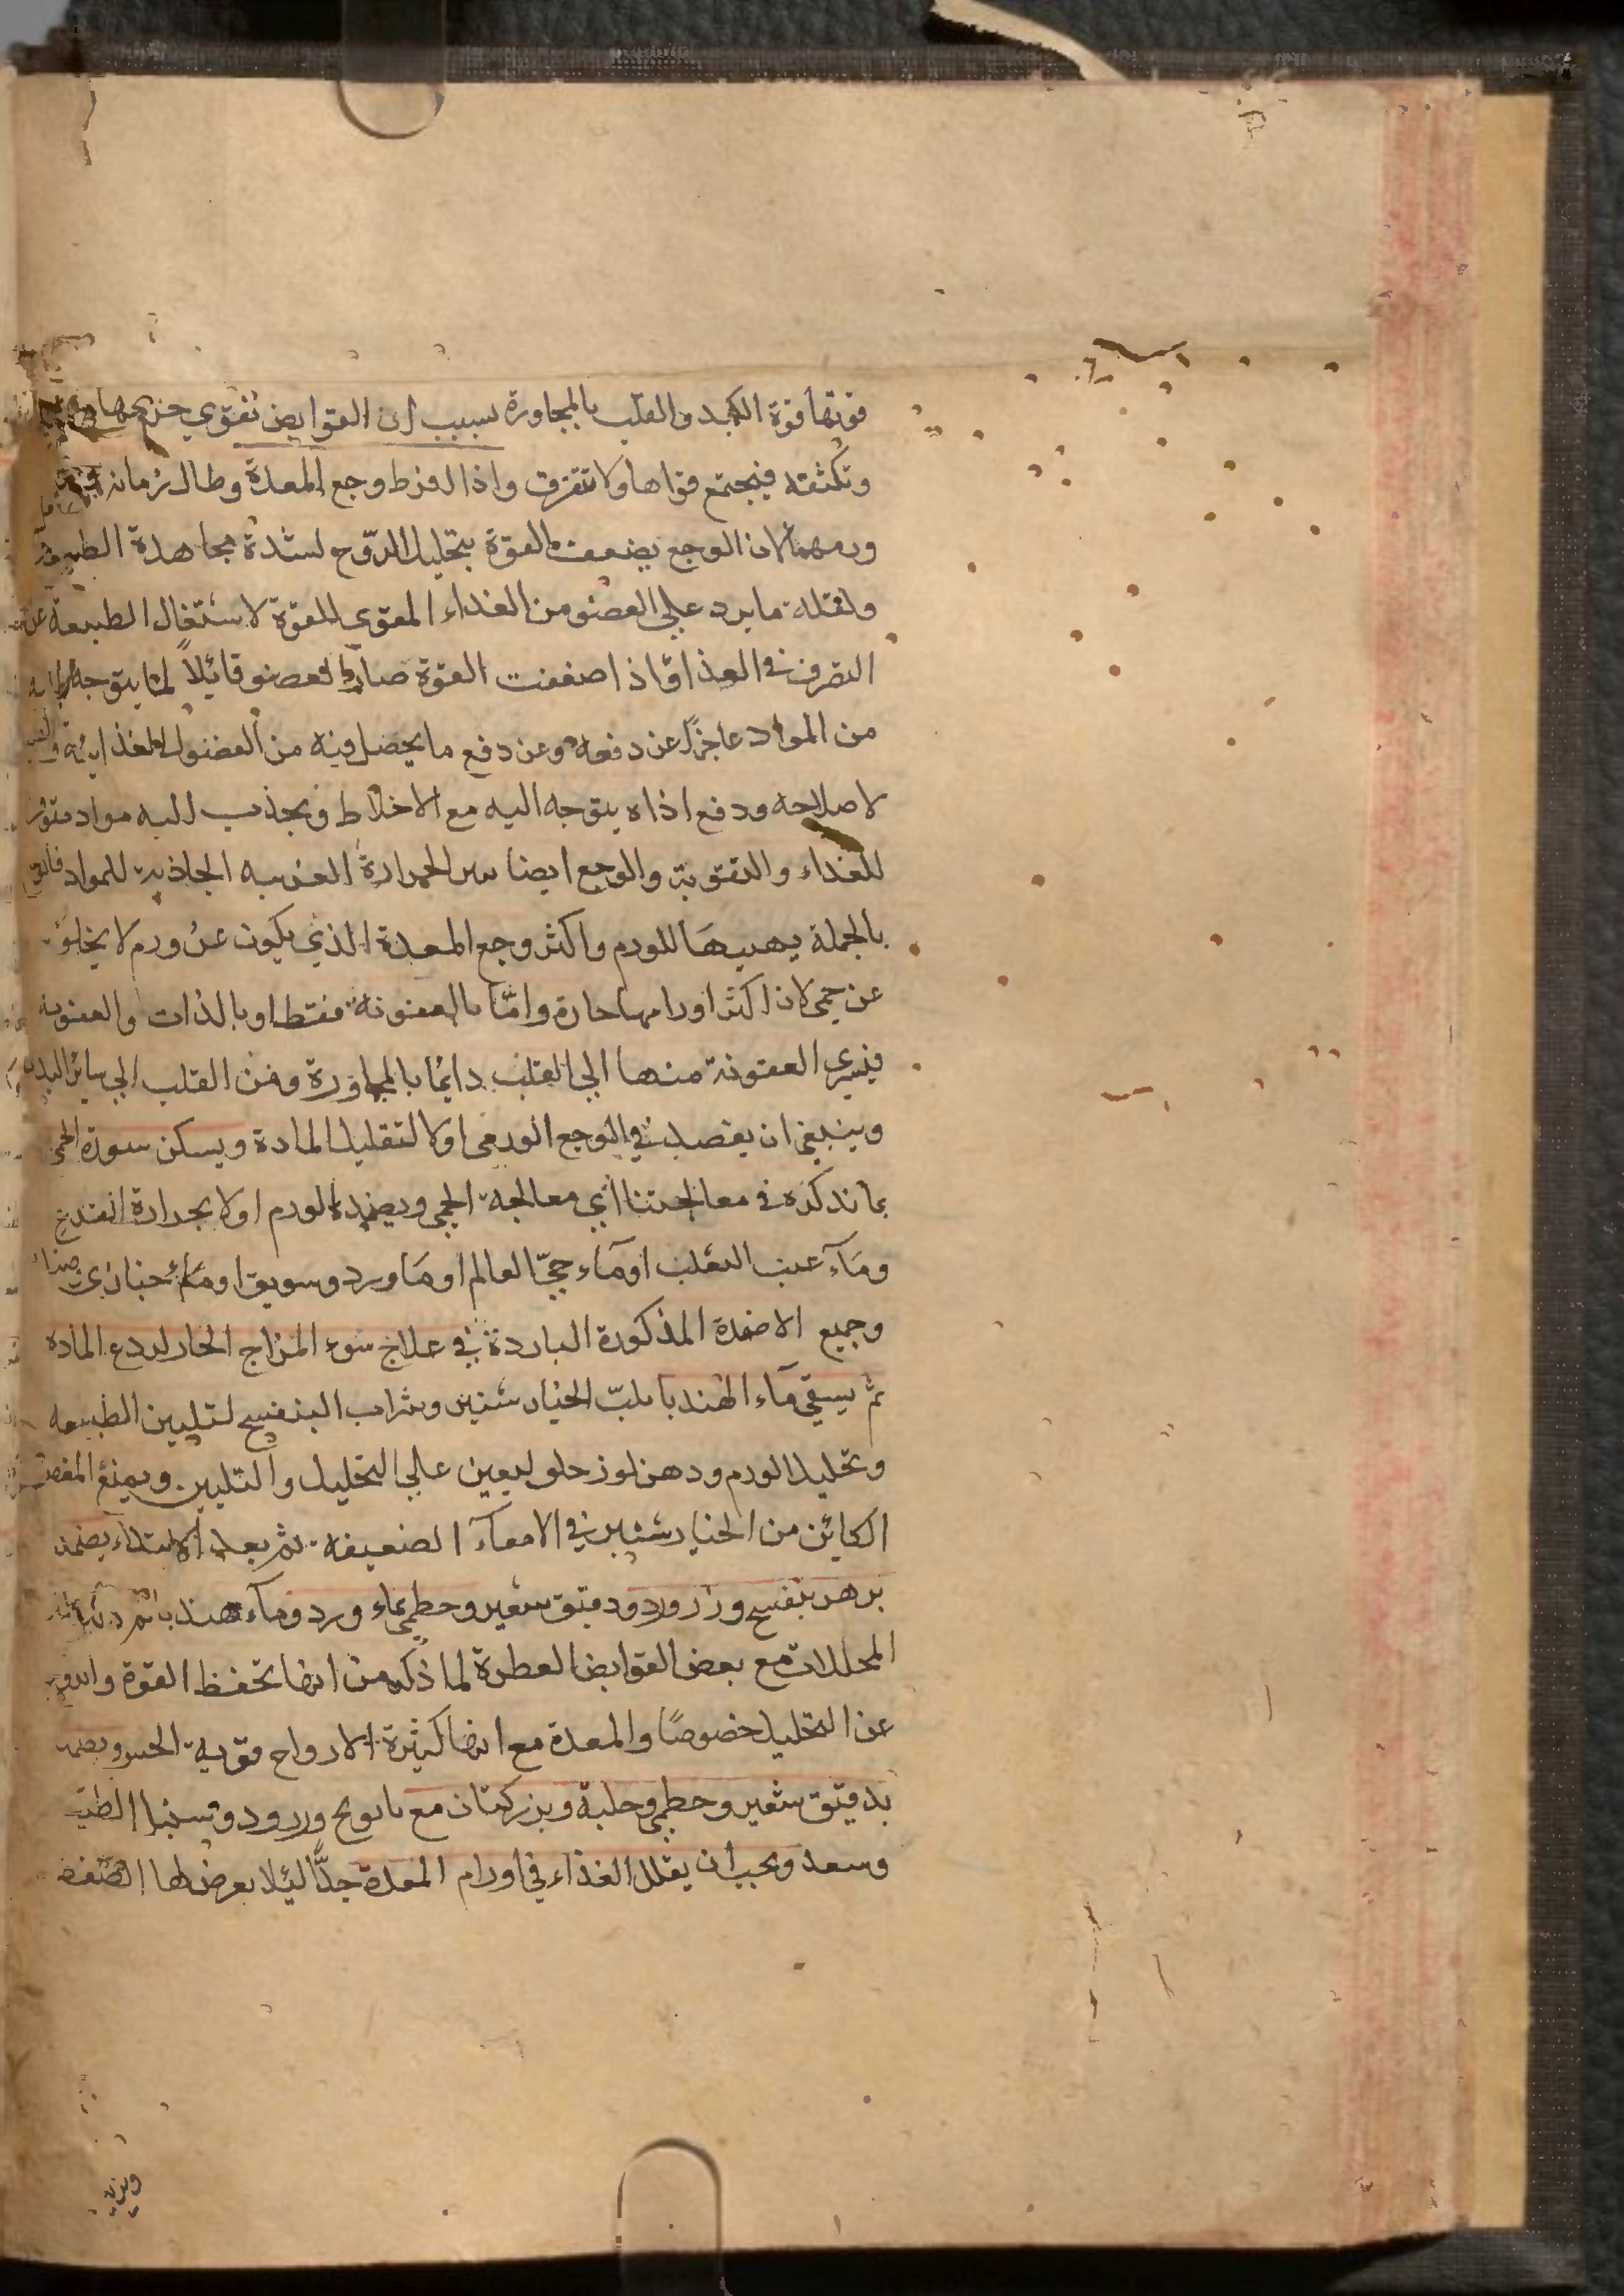 قوتها قوة الكبد والقلب بالمجاورة بسبب ان القوابض تقوي جرمها
وتكثفه فيجتمع قواها ولا تتفرق واذا افرط وجع المعدة وطال زمانه
ورمها لان الوجع يضعف القوة بتحليل الروح لشدة مجاهدة الطبيعة
ولقلة ما يرد علي العضو من الغذاء المقوي للقوة لاشتغال الطبيعة عن
التصرف في الغذا واذا ضعفت القوة صار العضو قابلاً لما يتوجه اليه
من المواد عاجزاً عن دفعه وعن دفع ما يحصل فيه من الفضول الغذائية
لاصلاحه ودفع اذاه يتوجه اليه مع الاخلاط ويجذب اليه مواد
للغذاء والتقوية والوجع ايضا يثير الحرارة الغريبه الجاذبة للمواد
بالجملة يهيها للورم واكثر وجع المعدة الذي يكون عن ورم لا يخلو
عن حمي لان اكثر اورامها حارة واما بالعفونة فقط او بالذات والعفونه
فيسري العفونة منها الي القلب دايما بالمجاورة ومن القلب الي سائر البدن
وينبغي ان يفصد في الوجع الورمي اولا لتقليل المادة ويسكن سورة الحمي
بما نذكره في معالجتنا اي معالجة الحمي ويضمد الورم اولا بجرادة القرع
وماء عنب الثعلب او ماء حي العالم او ماورد وسويق او ماء خبازي
وجميع الاضمدة المذكورة الباردة في علاج سوء المزاج الحار لردع المادة
ثم يسقي ماء الهندبا بلب الخيار شنبر وشراب البنفسج لتليين الطبيعه
وتحليل الورم ودهن لوز حلو ليعين علي التحليل والتليين ويمنع المغص
الكاين من الخيار شنبر في الامعآء الضعيفة ثم بعد الابتداء يضمد
بزهر بنفسج وزر ورد ودقيق شعير وخطمي بماء ورد وماء هندبا ثم
المحللات مع بعض القوابض العطرة لما ذكر من انها تحفظ القوة
عن التحليل خصوصًا والمعدة مع انها كثيرة الارواح قوية الحس ويضمد
بدقيق شعير وخطمي وحلبة وبزر كتان مع بابونج وزر ورد وسنبل الطيب
وسعد ويجب ان يقلل الغذاء في اورام المعدة جدًّا ليئلا يعرض لها الضغط